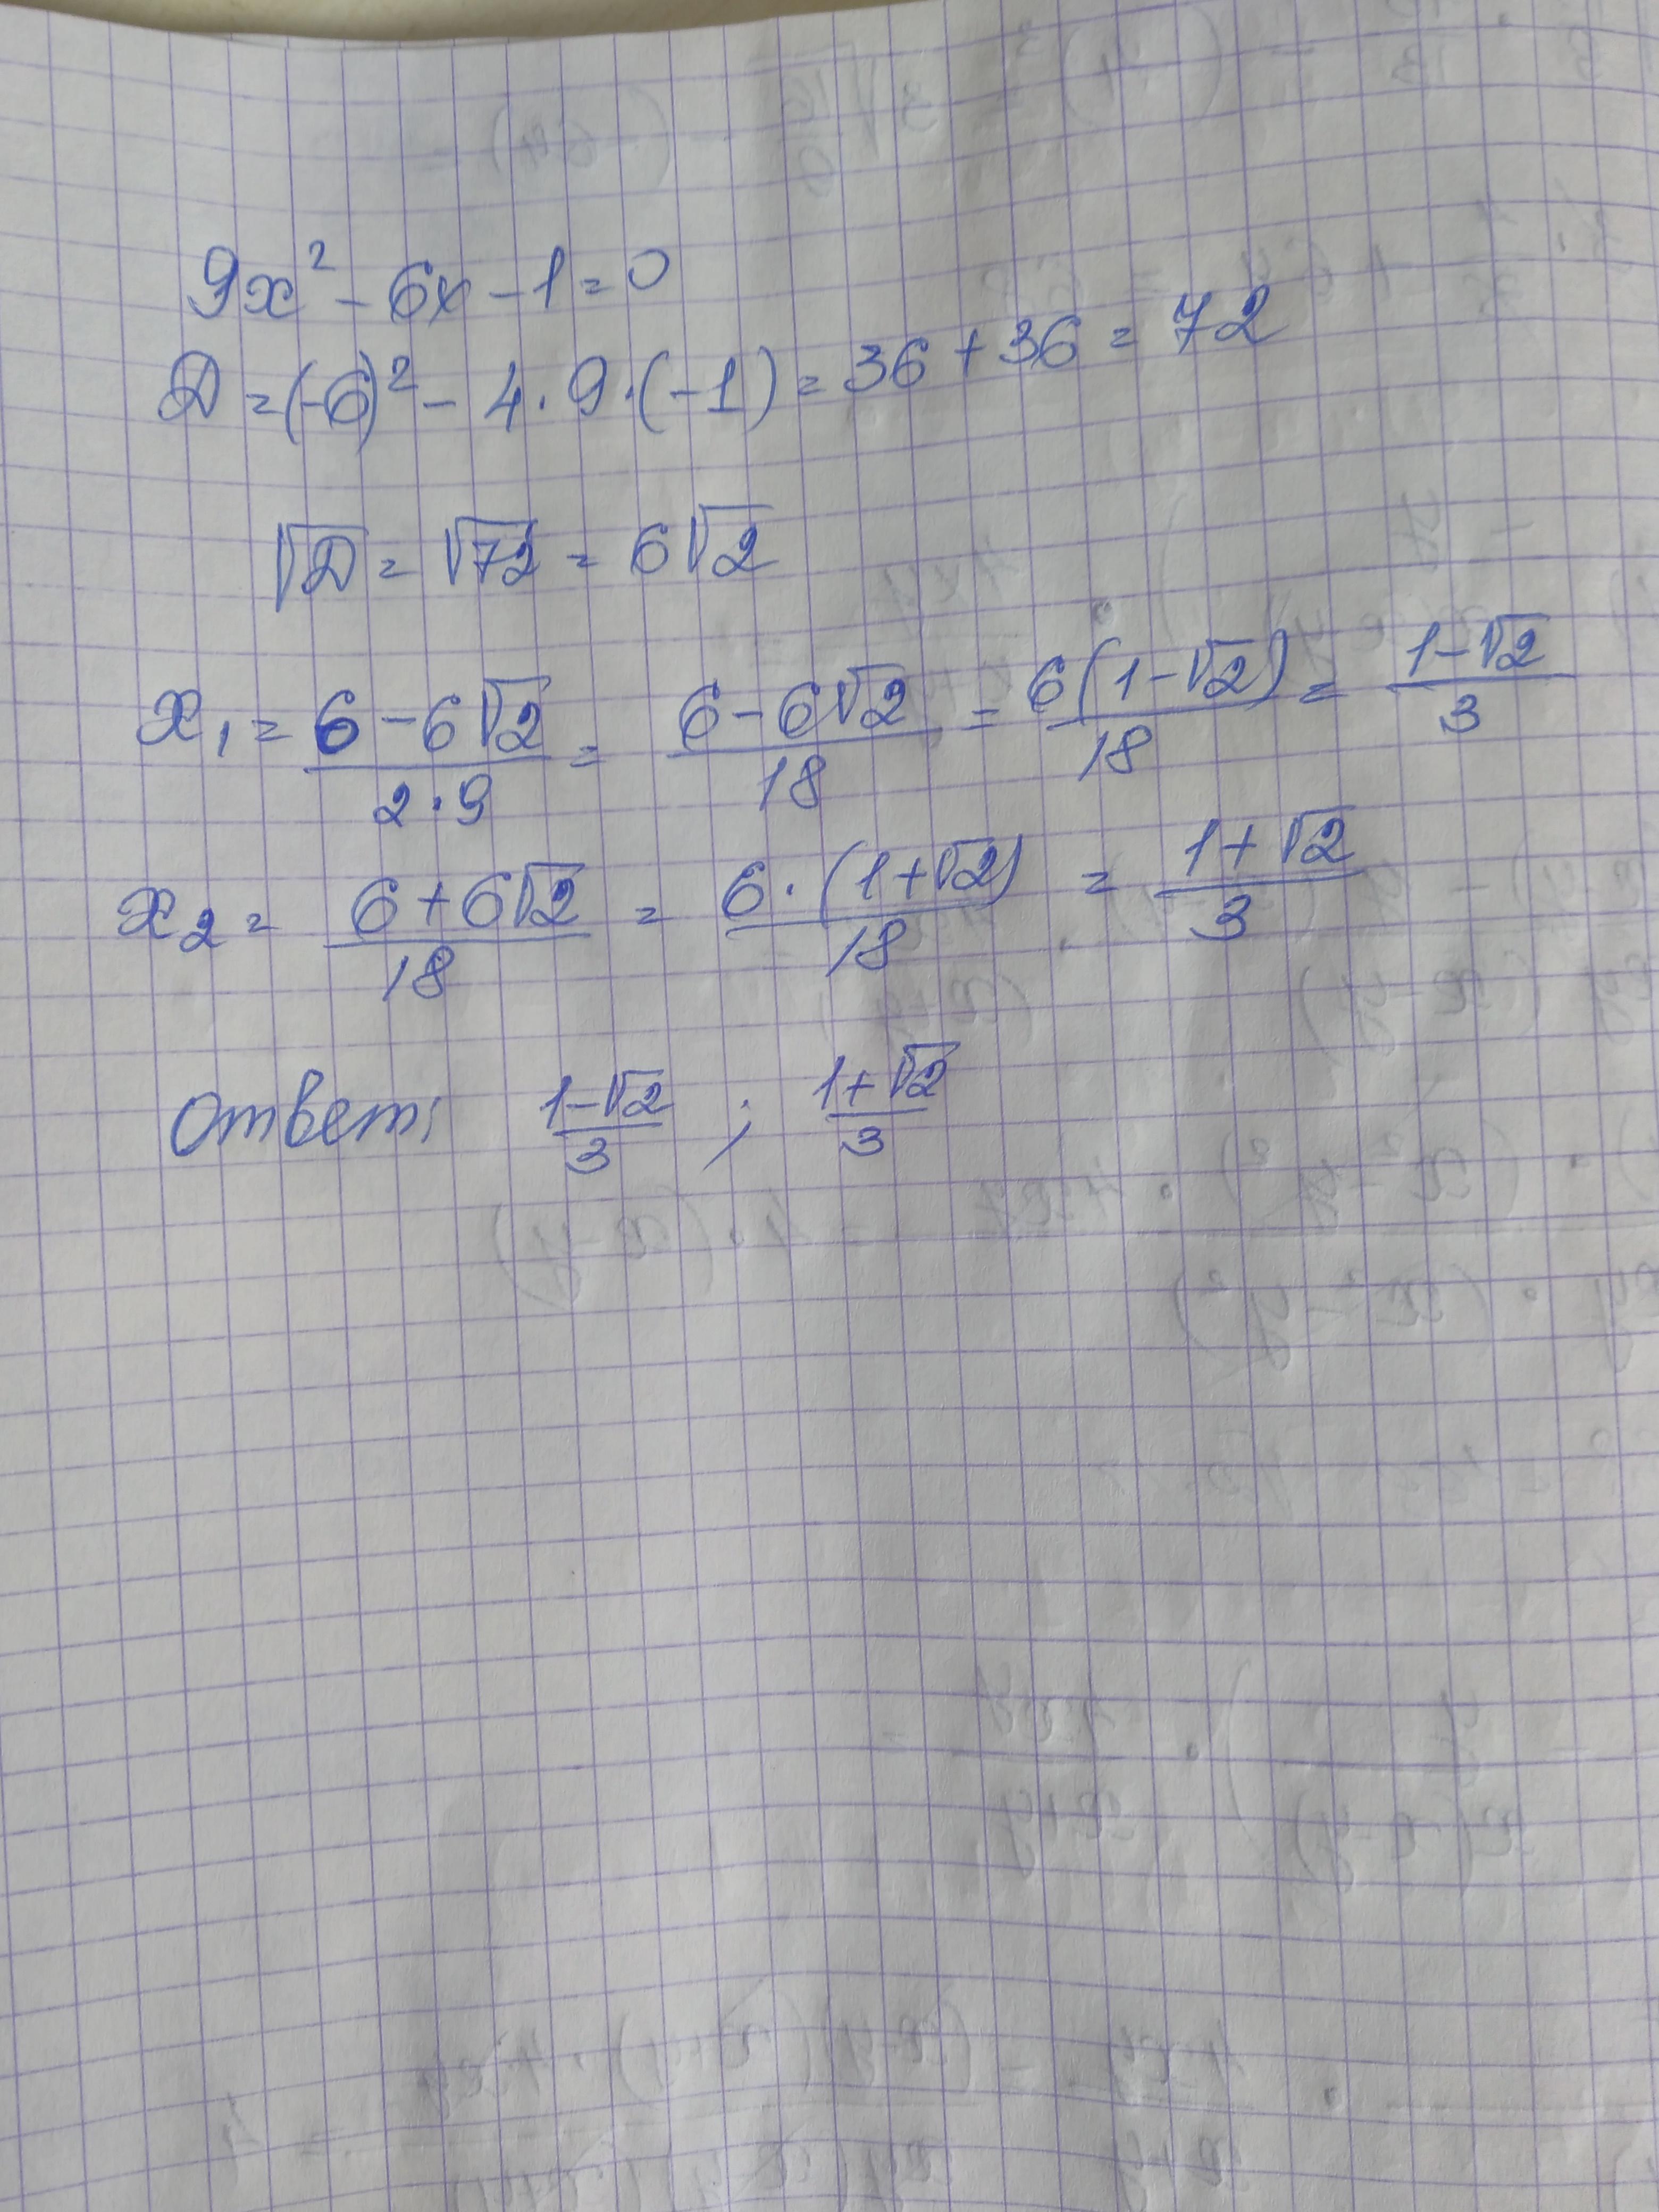 9x² - 6x - 1 = 0
D = (-6)² - 4 · 9 · (-1) = 36 + 36 = 72
√D = √72 = 6√2
x₁ = (6 - 6√2)/(2 · 9) = (6 - 6√2)/18 = 6(1 - √2)/18 = (1 - √2)/3
x₂ = (6 + 6√2)/18 = 6 · (1 + √2)/18 = (1 + √2)/3
Ответ: (1 - √2)/3 ; (1 + √2)/3